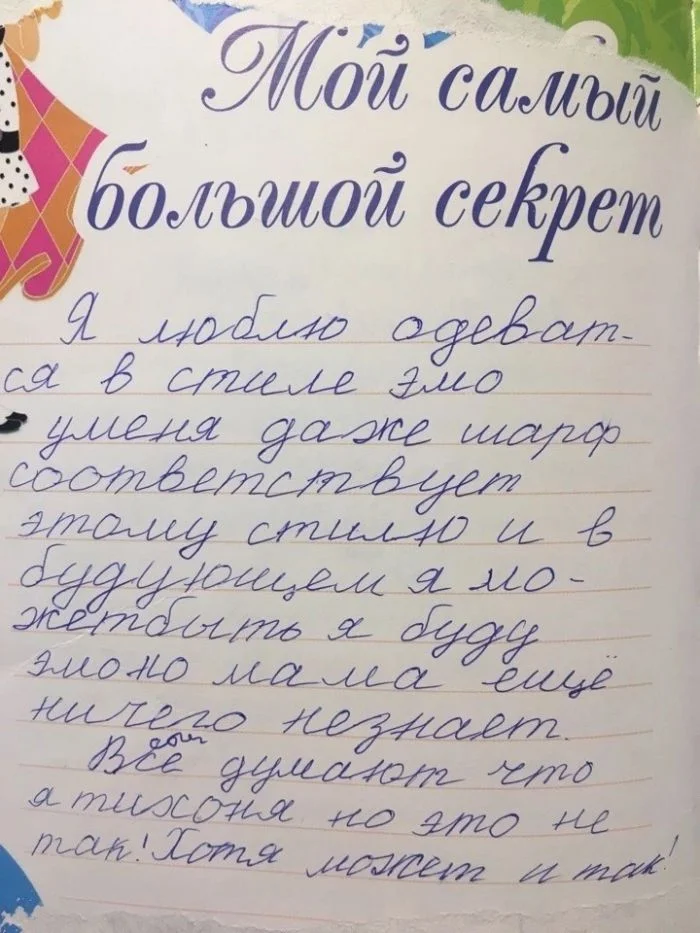 Мой самый
большой секрет
Я люблю одеват-
ся в стиле эмо
уменя даже шарф
соответствует
этому стилю и в
будующем я мо-
жетбыть я буду
эмоно мама ещё
ничего незнает.
Все думают что
я тихоня но это не
так! Хотя может и так!